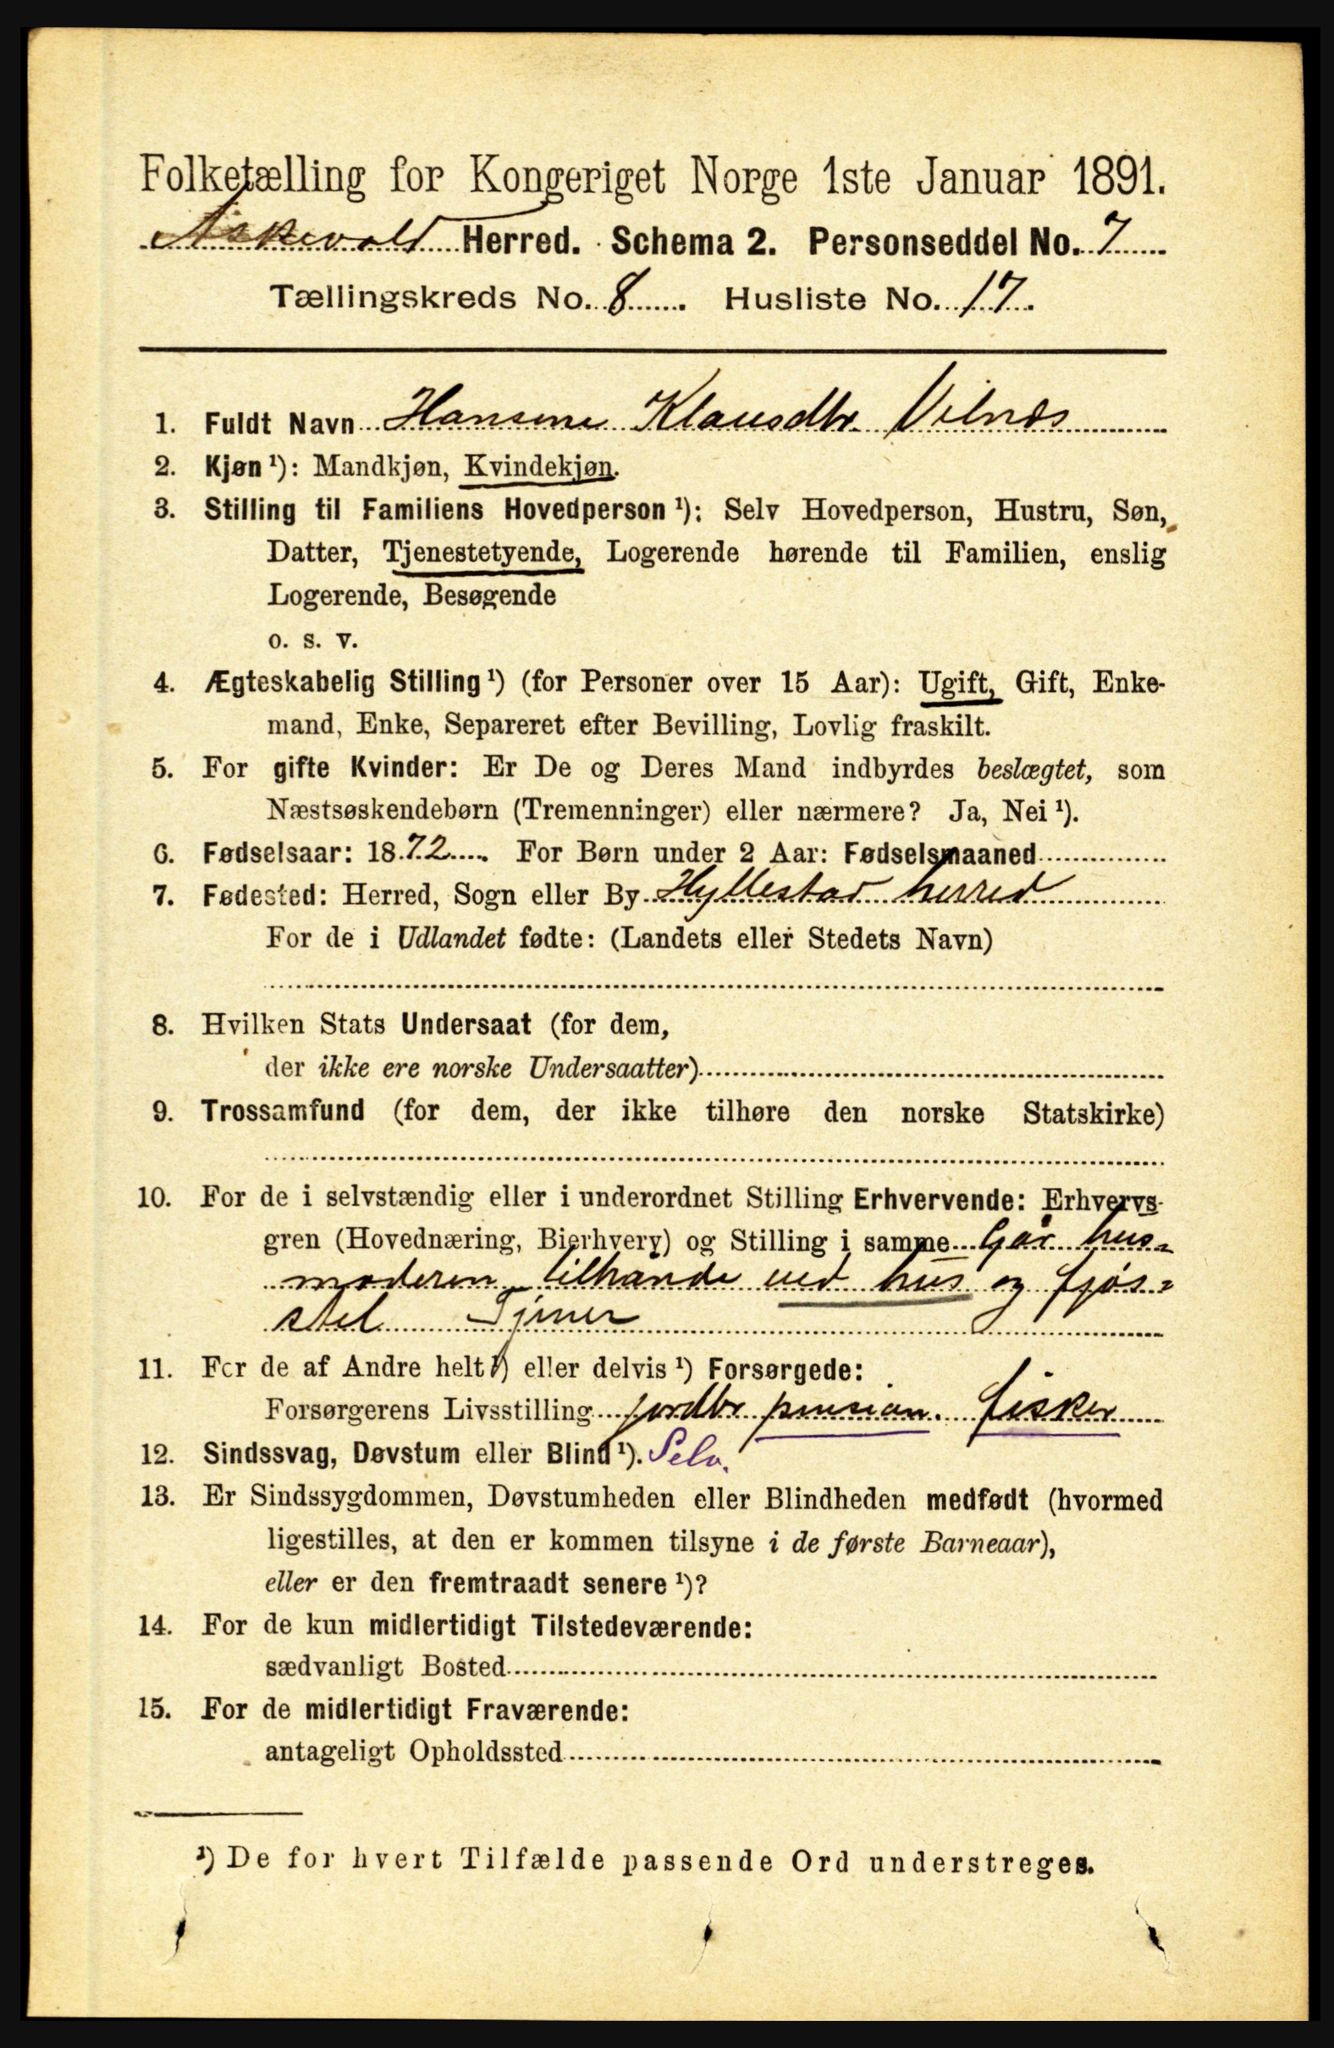 Folketælling for Kongeriget Norge 1ste Januar 1891.
Askevold Herred. Schema 2. Personseddel No. 7
Tællingskreds No. 8. Husliste No. 17.
1. Fuldt Navn Hansine Klausdtr. Vilnæs
2. Kjøn ¹): Mandkjøn, Kvindekjøn.
3. Stilling til Familiens Hovedperson ¹): Selv Hovedperson, Hustru, Søn,
Datter, Tjenestetyende, Logerende hørende til Familien, enslig
Logerende, Besøgende
o. s. v.
4. Ægteskabelig Stilling ¹) (for Personer over 15 Aar): Ugift, Gift, Enke-
mand, Enke, Separeret efter Bevilling, Lovlig fraskilt.
5. For gifte Kvinder: Er De og Deres Mand indbyrdes beslægtet, som
Næstsøskendebørn (Tremenninger) eller nærmere? Ja, Nei ¹).
6. Fødselsaar: 1872. For Børn under 2 Aar: Fødselsmaaned
7. Fødested: Herred, Sogn eller By Hyllestad herred
For de i Udlandet fødte: (Landets eller Stedets Navn)
8. Hvilken Stats Undersaat (for dem,
der ikke ere norske Undersaatter)
9. Trossamfund (for dem, der ikke tilhøre den norske Statskirke)
10. For de i selvstændig eller i underordnet Stilling Erhvervende: Erhvervs-
gren (Hovednæring, Bierhverv) og Stilling i samme Går hus-
moderen tilhånde ved hus og fjøs-
stel Tjener
11. For de af Andre helt ¹) eller delvis ¹) Forsørgede:
Forsørgerens Livsstilling jordbr pension. fisker
12. Sindssvag, Døvstum eller Blind ¹). Selv.
13. Er Sindssygdommen, Døvstumheden eller Blindheden medfødt (hvormed
ligestilles, at den er kommen tilsyne i de første Barneaar),
eller er den fremtraadt senere ¹)?
14. For de kun midlertidigt Tilstedeværende:
sædvanligt Bosted
15. For de midlertidigt Fraværende:
antageligt Opholdssted
¹) De for hvert Tilfælde passende Ord understreges.